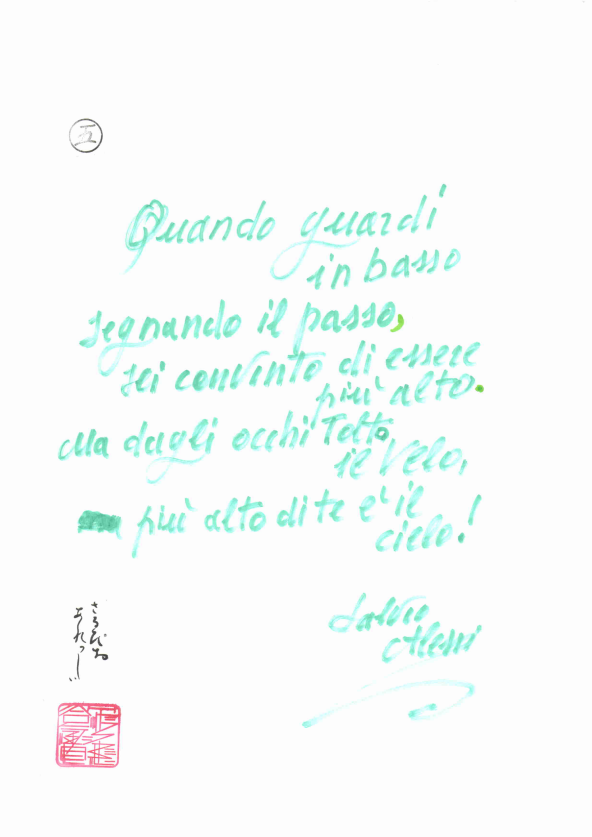 五
Quando guardi
in basso
segnando il passo,
sei convinto di essere
più alto.
Ma dagli occhi tolto
il velo,
più alto di te e' il
cielo!
Salvo
Alessi